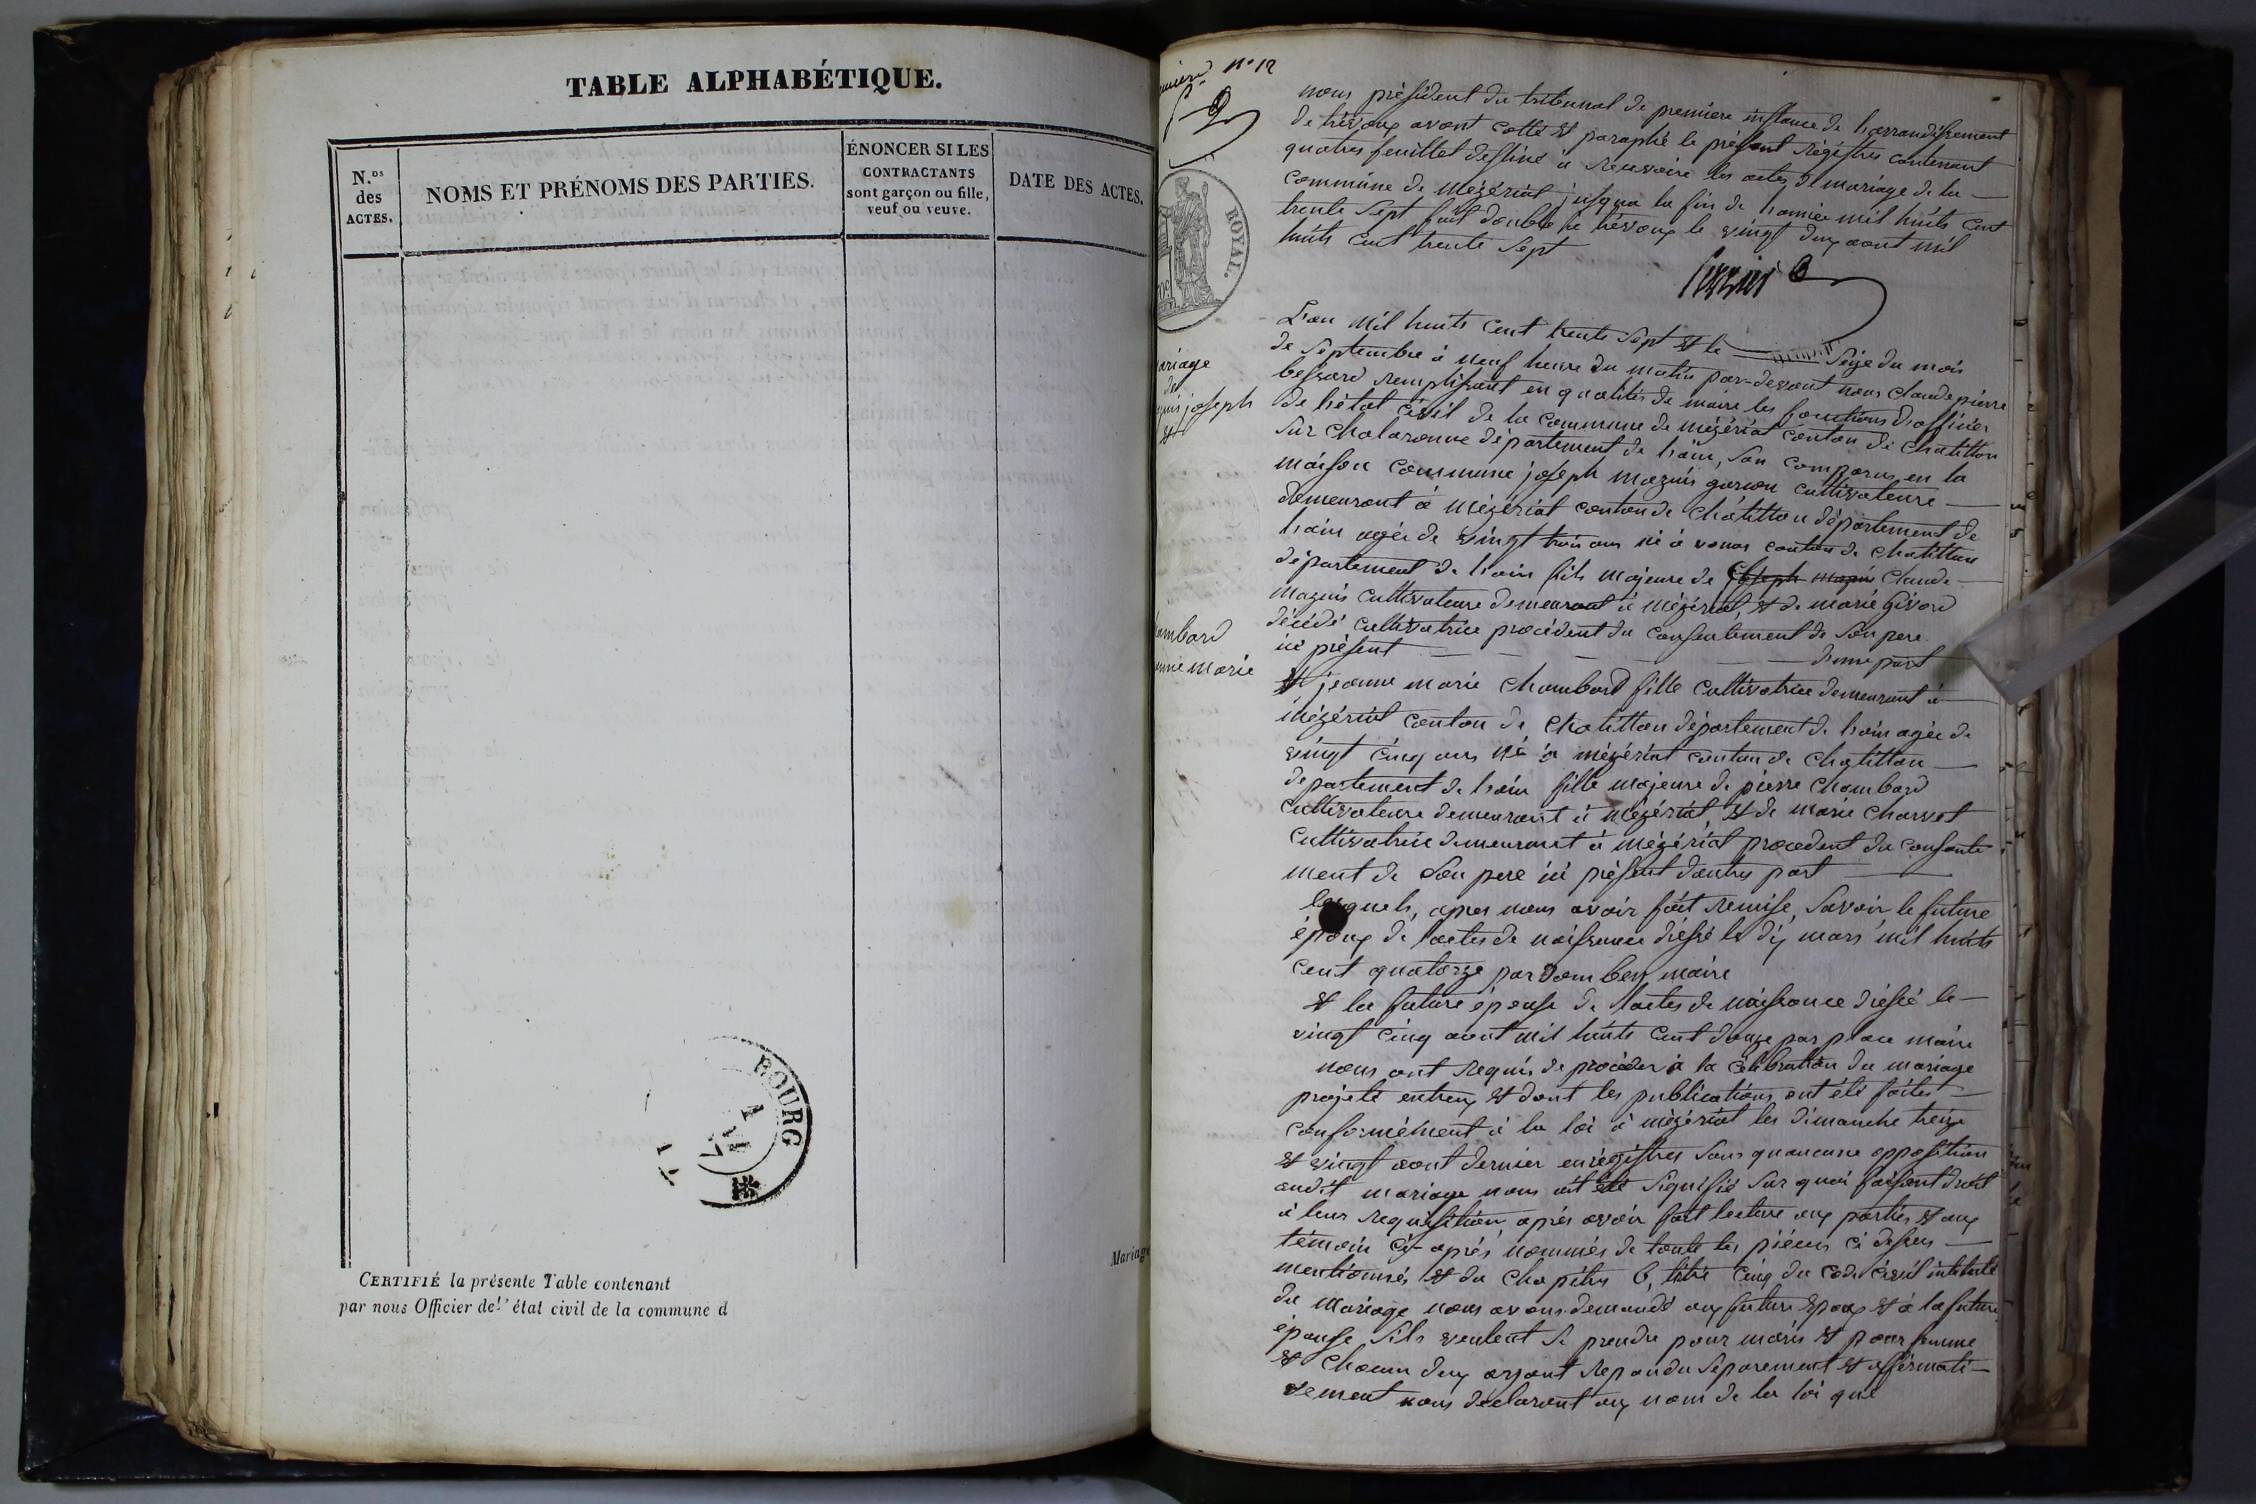 TABLE ALPHABÉTIQUE.
N.os
des
ACTES.
NOMS ET PRÉNOMS DES PARTIES.
ÉNONCER SI LES
CONTRACTANTS
sont garçon ou fille,
veuf ou veuve.
DATE DES ACTES.
BOURG
CERTIFIÉ la présente Table contenant
par nous Officier de l'état civil de la commune d
Mariage
n° 12
ROYAL.
nous président du tribunal de premiere instance de l'arrondissement
de trévoux avont cotté et paraphé le présent régistres contenant
quatres feuillet destiné à recevoire les actes de mariage de la
commune de mézériat jusqua la fin de l'année mil huits cent
trente sept fait double à trévoux le vingt deux aout mil
huits cent trente sept
L'an mil huits cent trente sept et le seize du mois
de septembre à neuf heure du matin par-devant nous claude pierre
bessard remplissant en qualités de maire les fonctions d'officier
de l'état civil de la commune de mézériat canton de chatillon
sur chalaronne département de l'ain, son comparus en la
maison commune joseph mazuis garcon cultivateure
demeurant à mézériat canton de châtillon département de
l'ain agée de vingt trois ans né à vonas canton de chatillon
département de l'ain fils majeure de joseph mazuis claude
mazuis cultivateure demeurant à mézériat, et de marie Givord
décédé cultivatrice procédent du consentement de son pere
ici présent d'une part
et jeanne marie chambard fille cultivatrice demeurant à
mézériat canton de chatillon département de l'ain agée de
vingt cinq ans né à mézériat canton de chatillon
departement de l'ain fille majeure de pierre chambard
cultivateure demeurant à mézériat, et de marie charvet
cultivatrice demeurant à mézériat procedent du consente
ment de son pere ici présent dautres part
lesquels, apres nous avoir fait remise, savoir le future
époux de lactes de naissance dressé le dix mars mil huits
cent quatorze par maire
et la future épouse de lactes de naissance dressé le
vingt cinq aout mil huits cent douze par place maire
nous ont requis de procéder à la célébration du mariage
projeté entreux et dont les publications ont été faites
conformément à la loi à mézériat les dimanche treize
et vingt aout dernier enrégistres sans quaucune opposition
audit mariage nous ait été signifié sur quoi faisant droit
à leur requisition, aprés avoir fait lecture aux parties et aux
témoin cy-aprés nommés de toute les piéces ci dessus
mentionnés et du chapitres 6, titre cinq du code civil intitulé
du mariage nous avons demandé aux future époux et à la future
épouse sils veulent se prendre pour maris et pour femme
et chacun deux ayant repondu séparement et affirmati-
vement nous déclaront aux nom de la loi que
ariage
de
joseph
et
ambard
anne marie